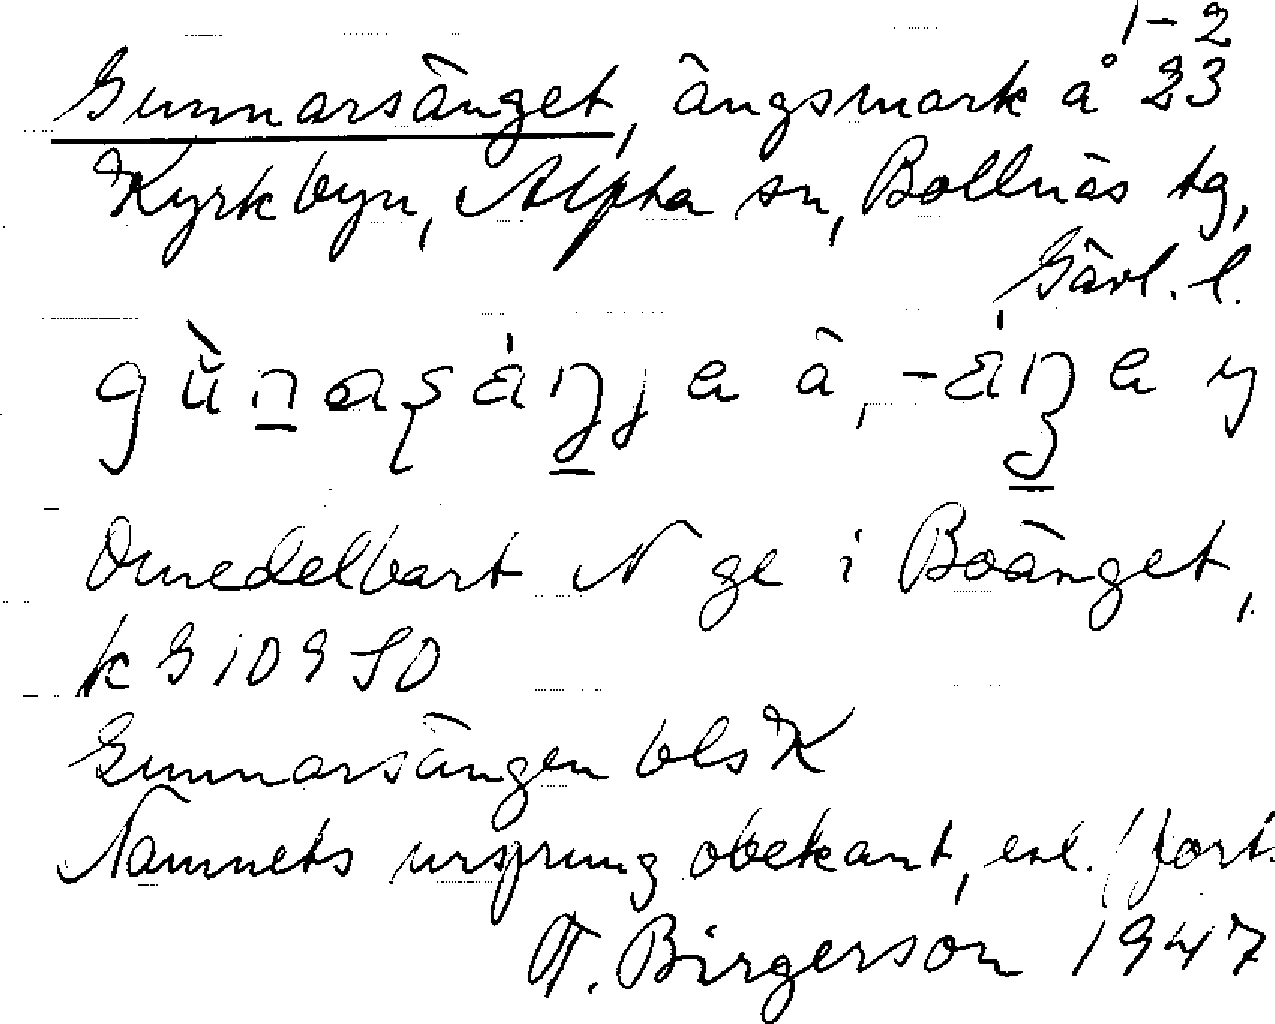 1-2
Gunnarsänget, ängsmark å 23
Kyrkbyn, Alfta sn, Bollnäs tg,
Gävl. l.
Omedelbart N ge i Boänget,
k 9109 SO
Gunnarsängen bls K
Namnets ursprung obekant, enl. (fort.
T. Birgerson 1947